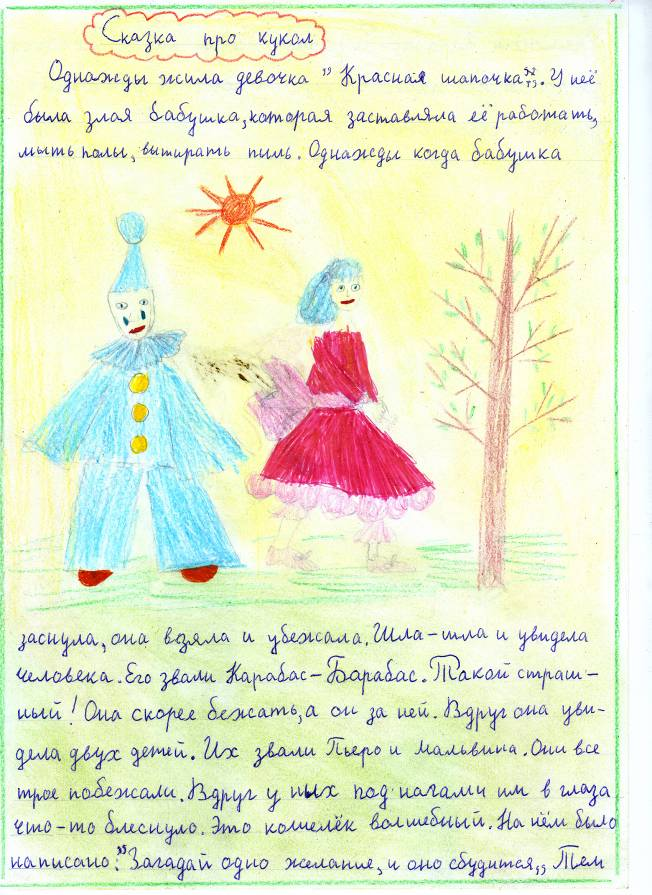 Сказка про кукол
Однажды жила девочка „Красная шапочка". У неё
была злая бабушка, которая заставляла её работать,
мыть полы, вытирать пыль. Однажды когда бабушка
заснула, она взяла и убежала. Шла-шла и увидела
человека. Его звали Карабас-Барабас. Такой страш-
ный! Она скорее бежать, а он за ней. Вдруг она уви-
дела двух детей. Их звали Пьеро и Мальвина. Они все
трое побежали. Вдруг у них под нагами им в глаза
что-то блеснуло. Это кошелёк волшебный. На нём было
написано: "Загадай одно желание, и оно сбудится„ Тем